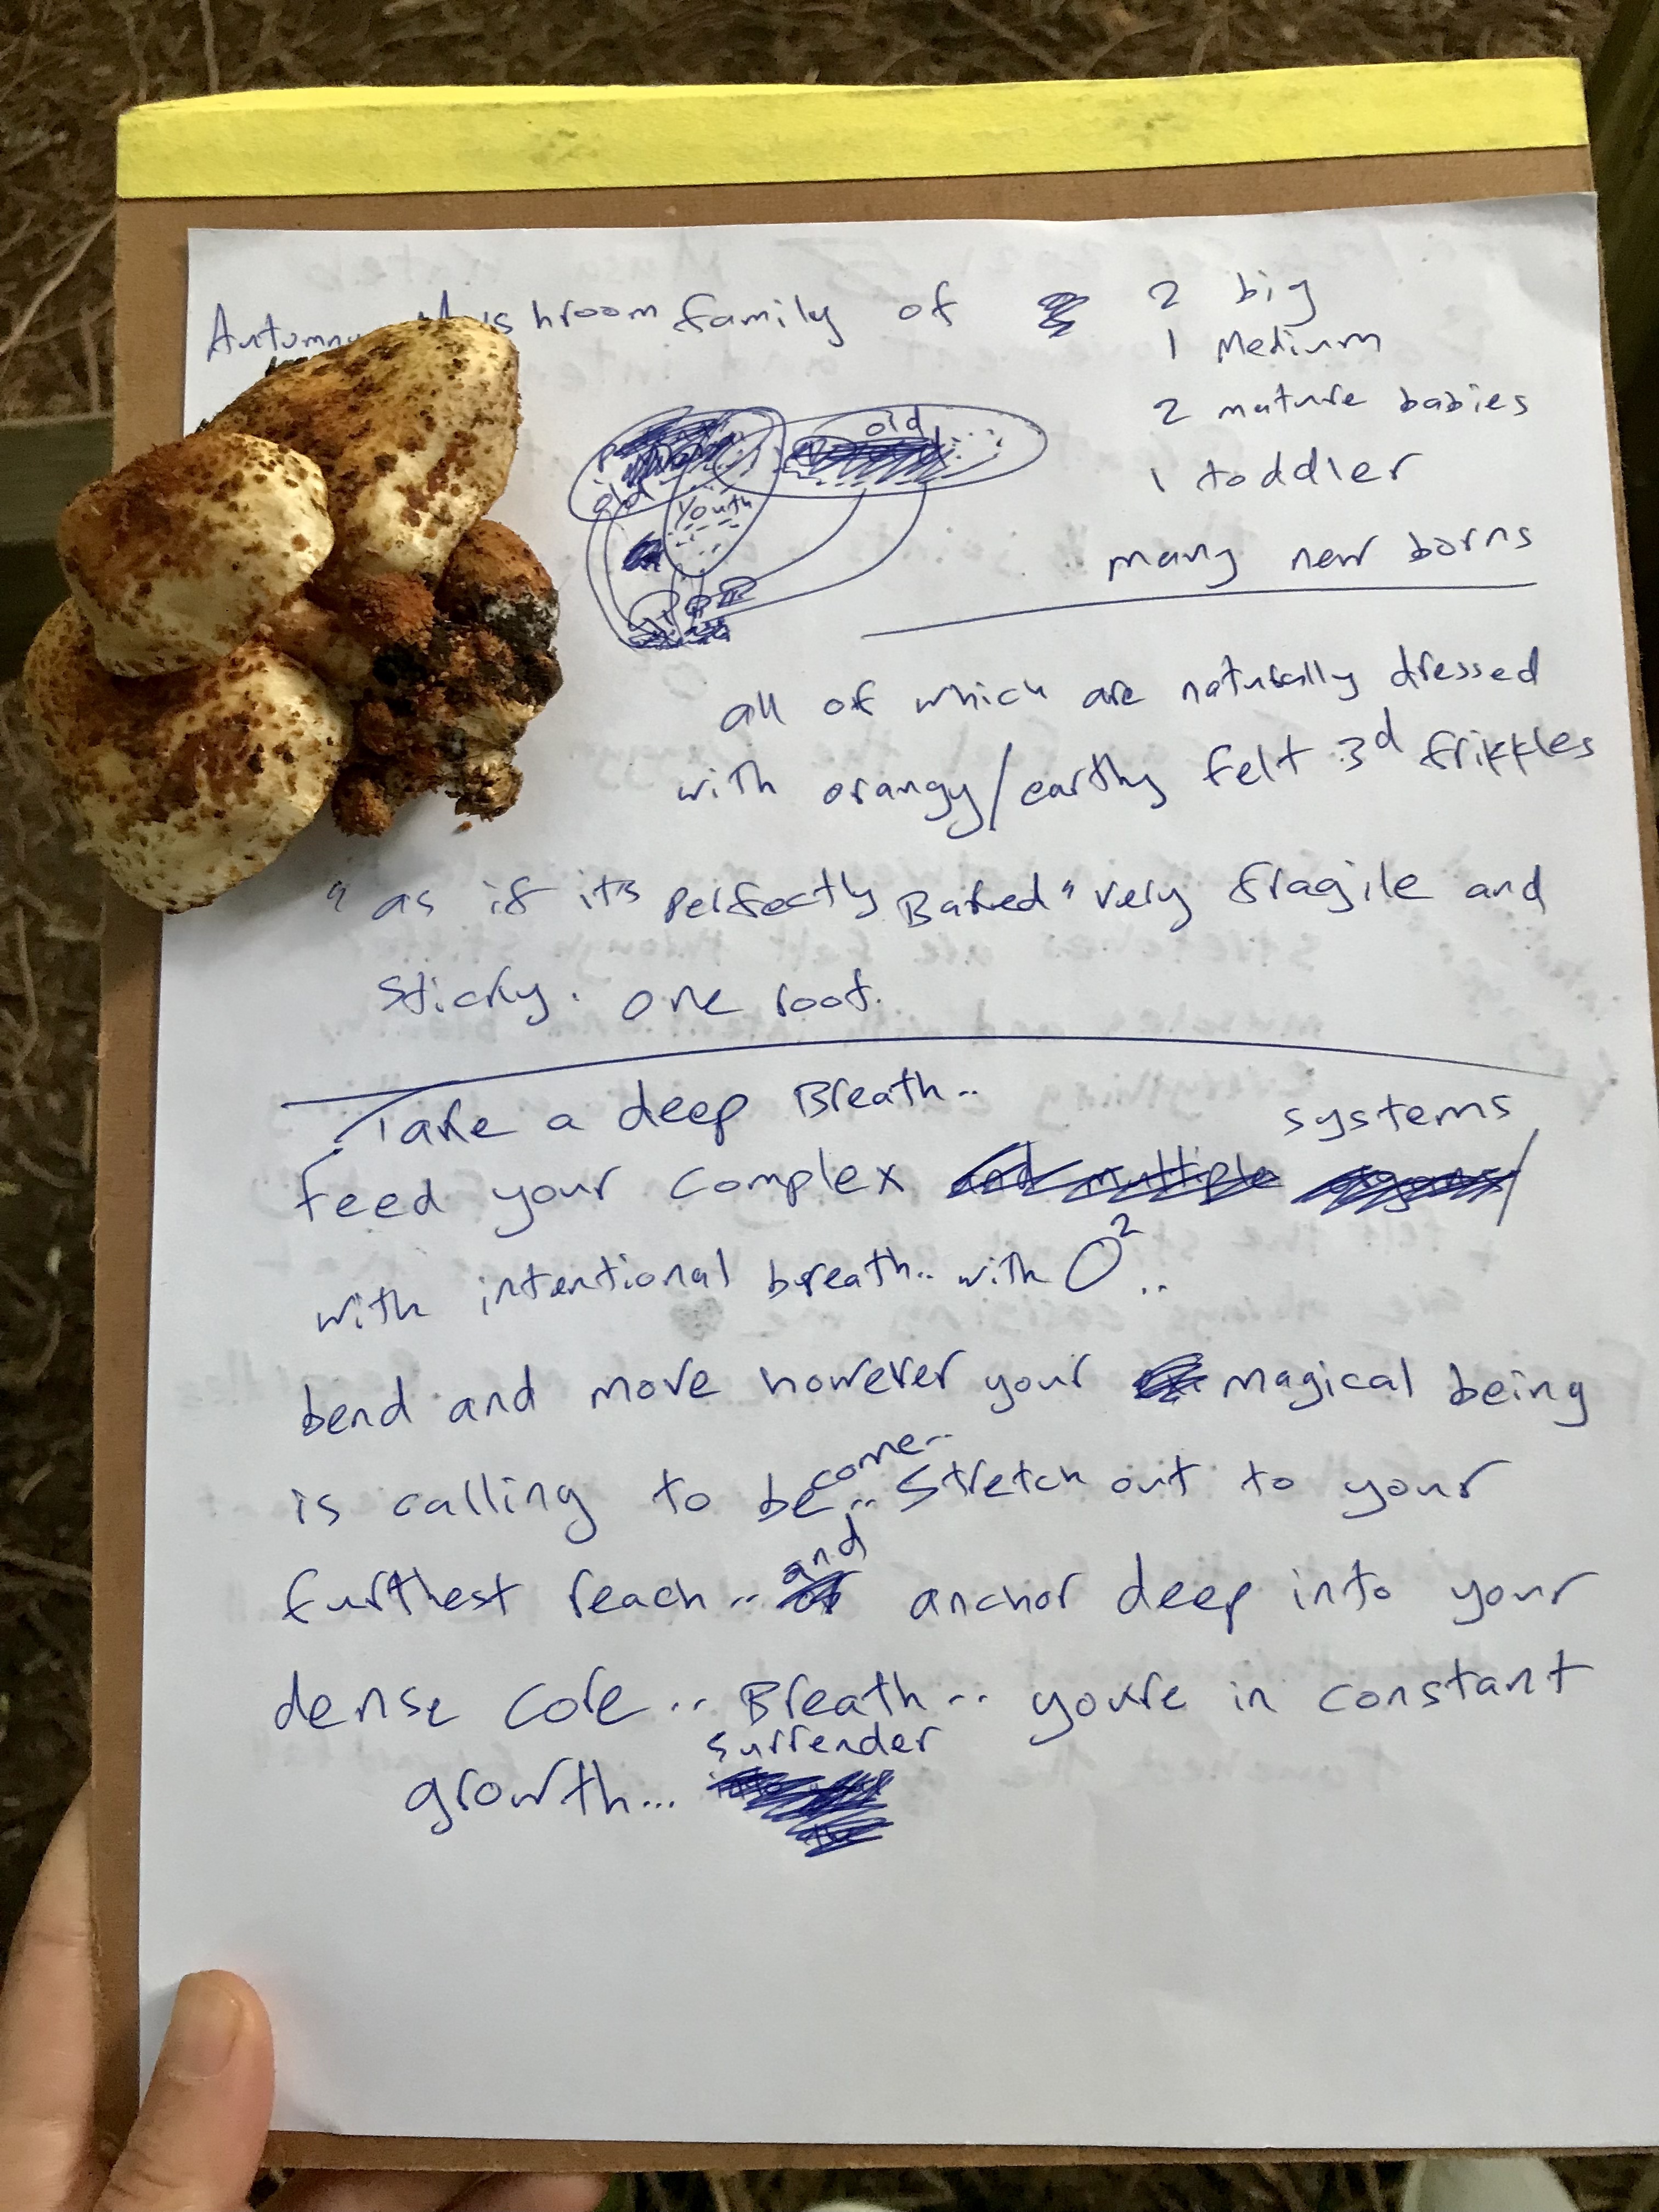 Autumn Mushroom family of 2 big
1 Medium
2 mature babies
1 toddler
many new borns
old
old
Youth
all of which are naturally dressed
with orangy/earthy felt 3d frikkles
"as if its perfectly Baked" very fragile and
sticky. one root.
Take a deep Breath..
feed your complex systems
with intentional breath.. with O²..
bend and move however your magical being
is calling to become.. Stretch out to your
furthest reach.. and anchor deep into your
dense core.. Breath.. youre in constant
growth... surrender